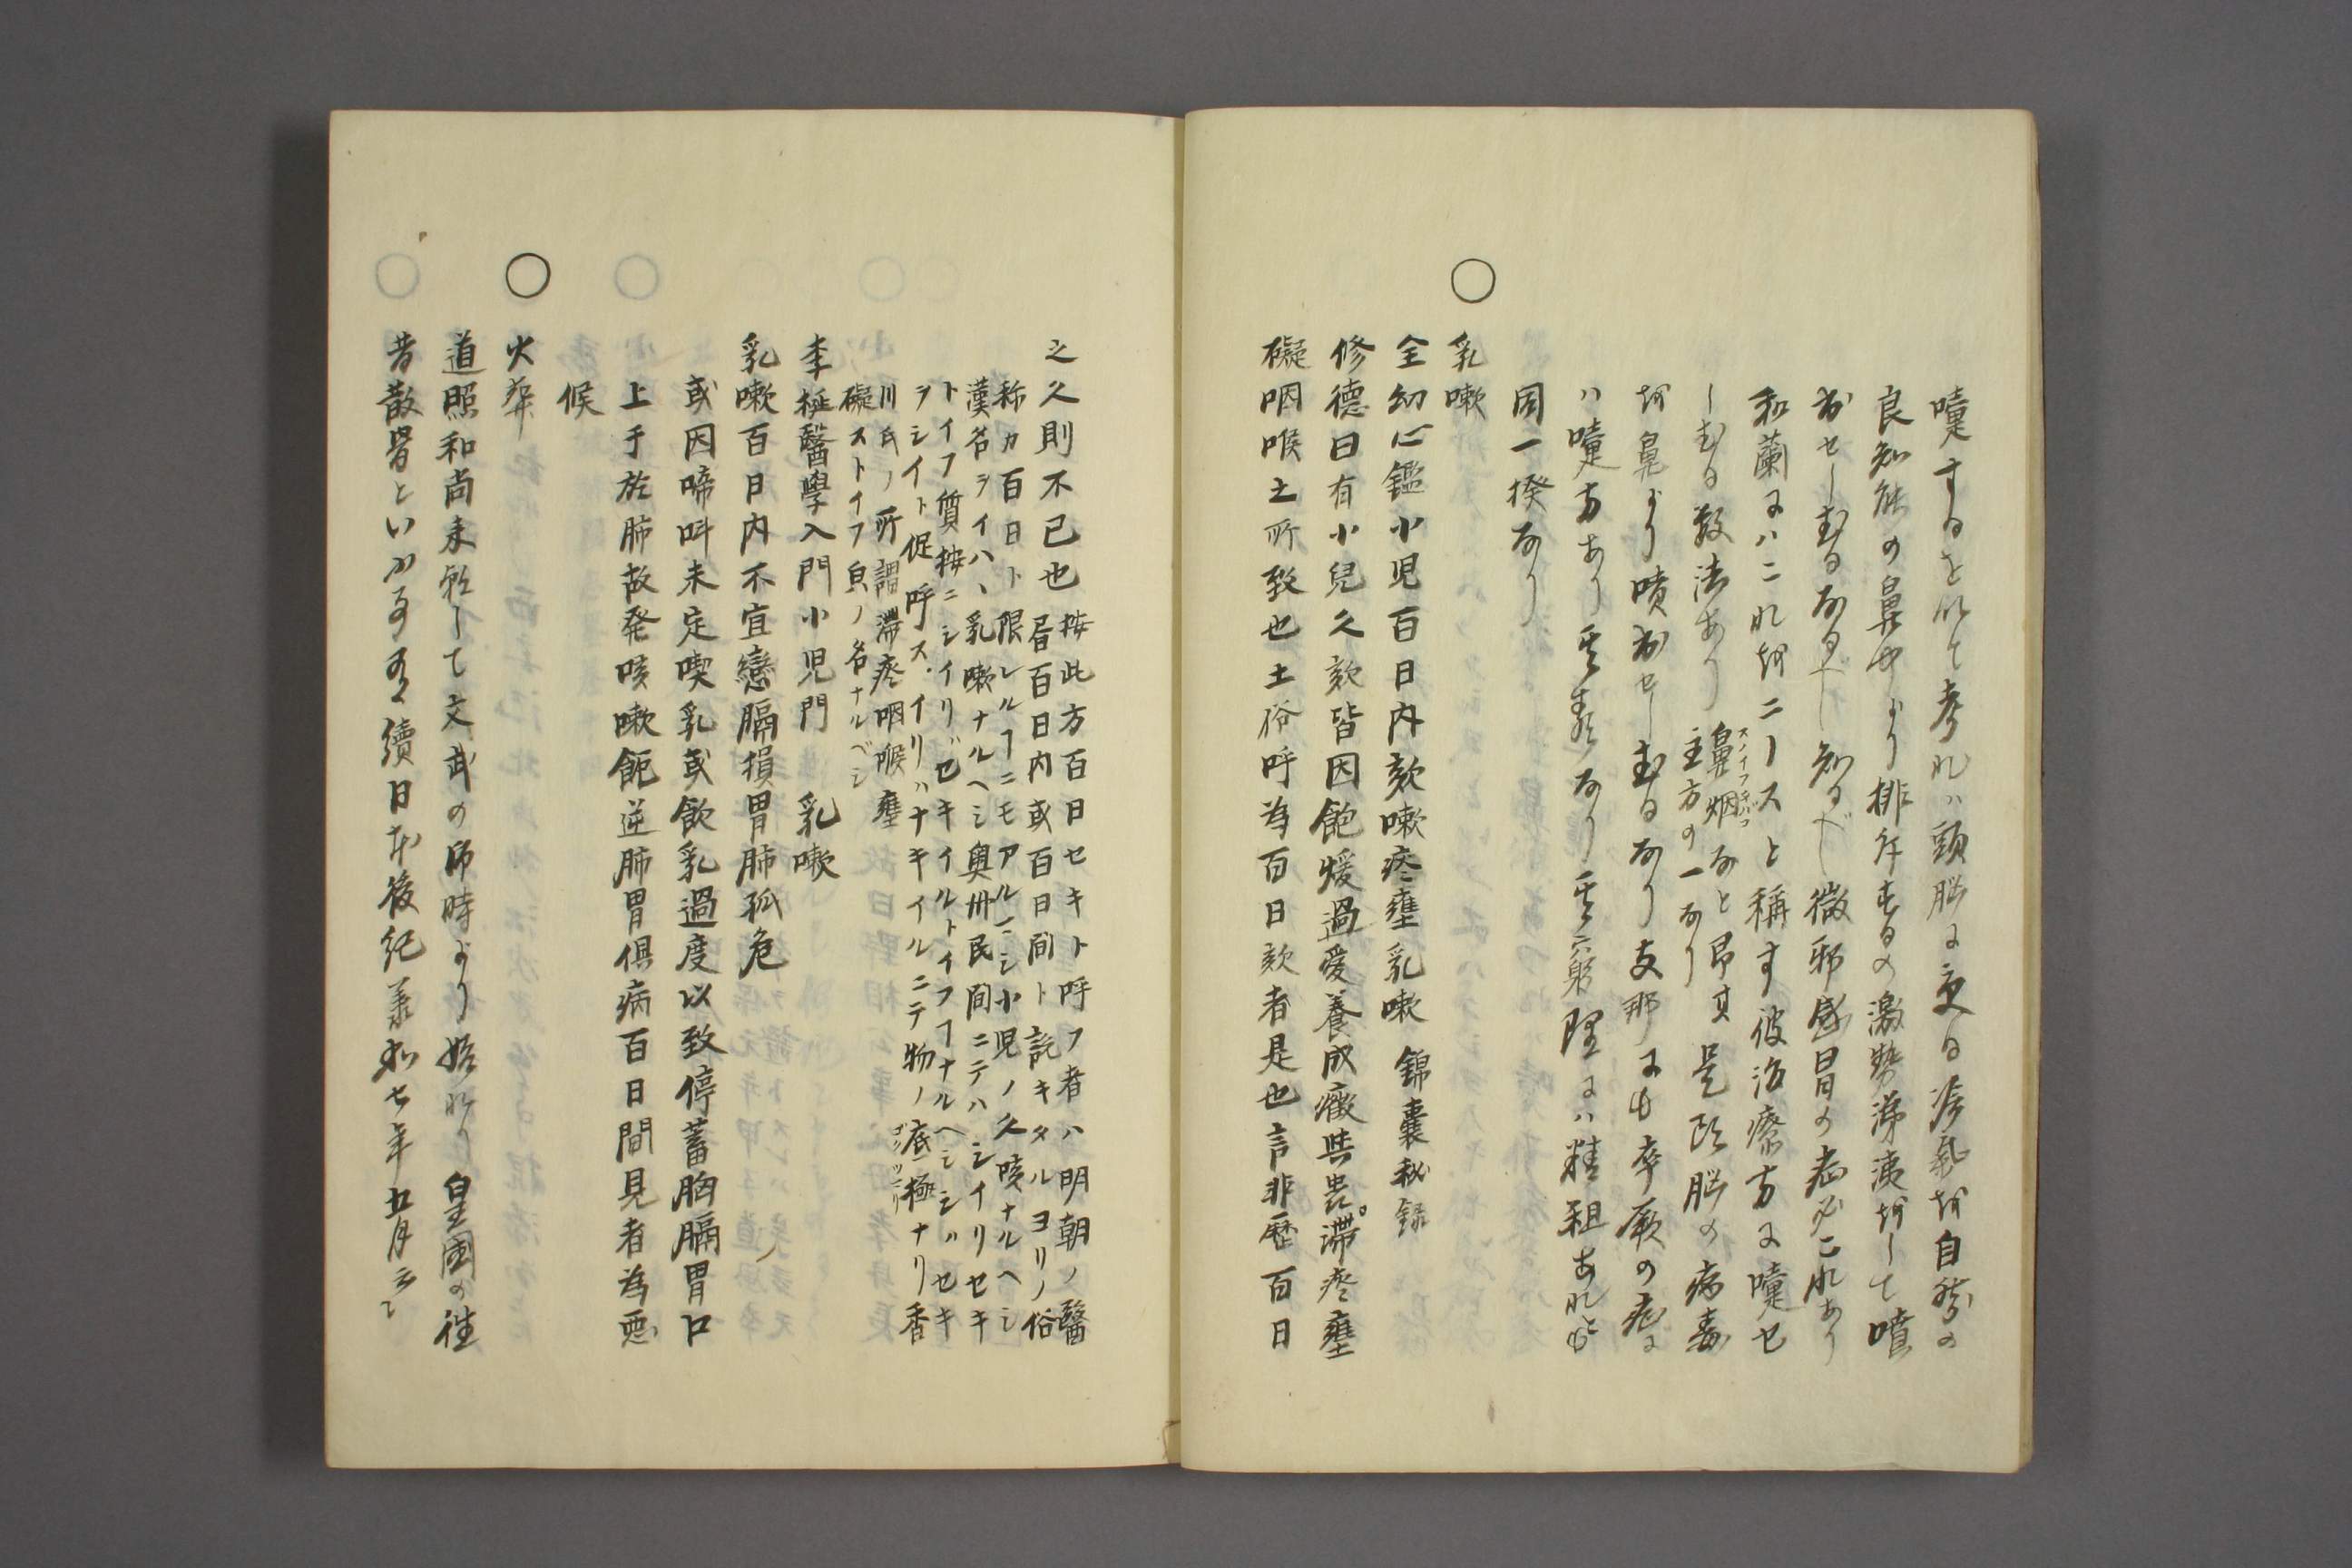 嚏するを以て考れハ頭脳に受る冷氣を自然の
良知能の鼻中より排斥するの激勢涕洟をして噴
出せしむるなるべし知るべし微邪感冒の症必これあり
和蘭にハこれをニースと稱す彼治療方に嚏せ
しむる数法あり鼻烟なと昂其主方の一なり是頭脳の病毒
スノイフタバコ
を鼻より噴出せしむるなり支那にも卒厥の症に
ハ嚏方あり其義なり其窮理にハ精粗あれとも
同一揆なり
○乳嗽
全幼心鑑小児百日内欬嗽痰壅乳嗽 錦嚢秘録
修德曰有小兒久欬皆因飽煖過愛養成癥
滯痰壅
礙咽喉之所致也土俗呼為百日欬者是也言非歷百日
之久則不已也按此方百日セキト呼フ者ハ明朝ノ醫
昏百日内或百日間ト説キタルヨリノ俗
称カ百日ト限レルヿニモアルマシ小児ノ久咳ナルヘシ
漢名ヲイハヽ乳嗽ナルヘシ奥州民間ニテハシイリセキ
トイフ質按ニシイリゼキイルトイフヿナルヘシシハセキ
ヲシイト促呼ス イリハナキイルニテ物ノ底極ナリ香
ゴクツマリ
川氏ノ所謂滯痰咽喉壅
礙ストイフ貟ノ名ナルベシ
李梴醫學入門小児門 乳嗽
乳嗽百日内不宜戀膈損胃肺孤危
或因啼呌未定喫乳或飲乳過度以致停蓄胸膈胃口
上于於肺故発咳嗽飽逆肺胃俱病百日間見者為悪
候
○火葬
道照和尚来朝して文武の御時より始れり 皇國の往
昔散骨といふ事有續日本後紀義和七年五月云々